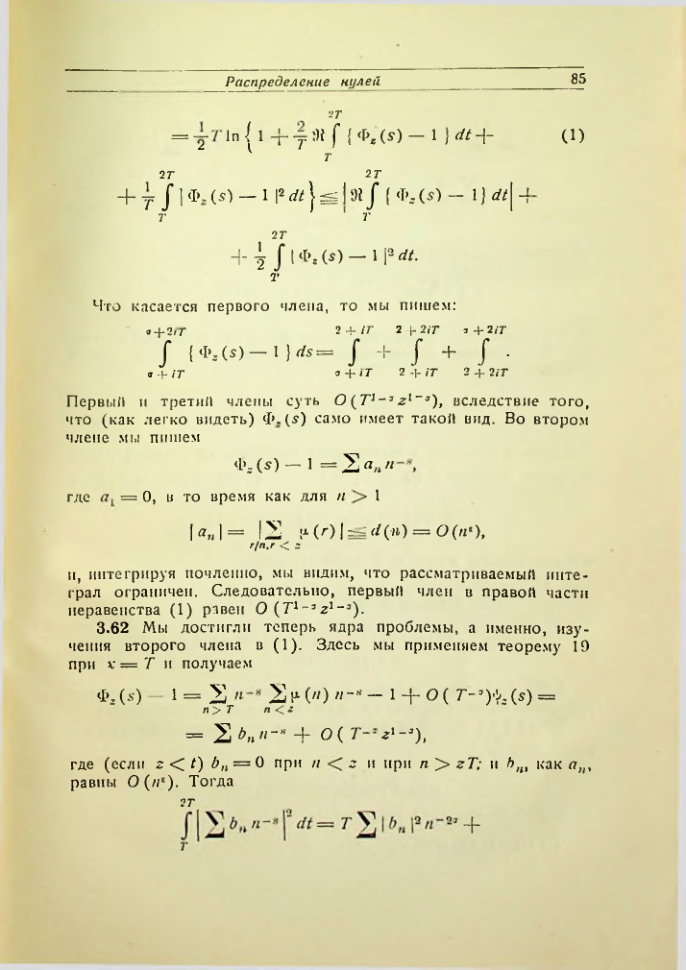 Распределение нулей 85
= 1/2 T ln { 1 + 2/T ℜ ∫_T^{2T} { Φ_z (s) — 1 } dt + (1)
+ 1/T ∫_T^{2T} | Φ_z (s) — 1 |² dt } ≦ | ℜ ∫_T^{2T} { Φ_z (s) — 1 } dt | +
+ 1/2 ∫_T^{2T} | Φ_z (s) — 1 |² dt.
Что касается первого члена, то мы пишем:
∫_{σ + iT}^{σ + 2iT} { Φ_z (s) — 1 } ds = ∫_{σ + iT}^{2 + iT} + ∫_{2 + iT}^{2 + 2iT} + ∫_{2 + 2iT}^{σ + 2iT} .
Первый и третий члены суть O (T^{1-σ} z^{1-σ}), вследствие того,
что (как легко видеть) Φ_z (s) само имеет такой вид. Во втором
члене мы пишем
Φ_z (s) — 1 = ∑ a_n n^{-s},
где a_1 = 0, в то время как для n > 1
| a_n | = | ∑_{r/n, r < z} μ (r) | ≦ d (n) = O (n^ε),
и, интегрируя почленно, мы видим, что рассматриваемый инте-
грал ограничен. Следовательно, первый член в правой части
неравенства (1) равен O (T^{1-σ} z^{1-σ}).
3.62 Мы достигли теперь ядра проблемы, а именно, изу-
чения второго члена в (1). Здесь мы применяем теорему 19
при x = T и получаем
Φ_z (s) — 1 = ∑_{n > T} n^{-s} ∑_{n < z} μ (n) n^{-s} — 1 + O ( T^{-σ}) ψ_z (s) =
= ∑ b_n n^{-s} + O ( T^{-σ} z^{1-σ}),
где (если z < t) b_n = 0 при n < z и при n > zT; и b_n, как a_n,
равны O (n^ε). Тогда
∫_T^{2T} | ∑ b_n n^{-s} |² dt = T ∑ | b_n |² n^{-2σ} +